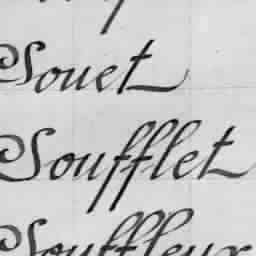 Souet
Soufflet
Souffleur